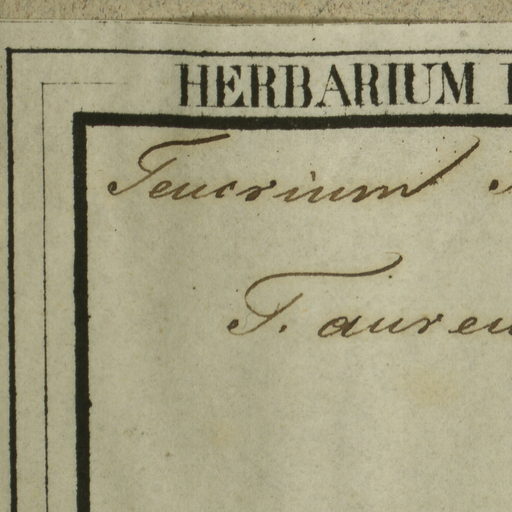 HERBARIUM
Teucrium
T. aureu